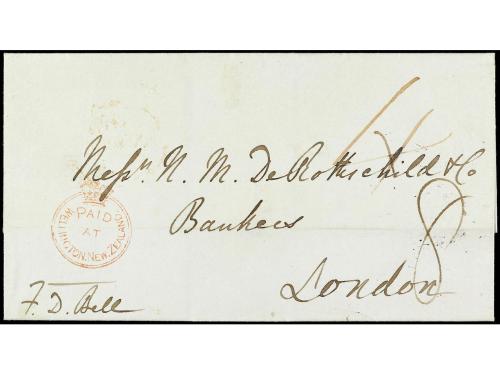 Messrs. N. M. De Rothschild & Co
Bankers
London
8
PAID
AT
WELLINGTON, NEW ZEALAND
F. D. Bell